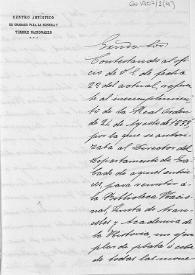 CENTRO ARTÍSTICO
DE GRABADO PARA LA MONEDA Y
TIMBRE NACIONALES
Contestando al ofi
cio de V.I. de fecha
22 del actual, referen
te al incumplimien
to de la Real orden
de 24 de Agosto de 1859
por la que se autori
zaba al Director del
Departamento de Gra
bado de aquel enton
ces, para remitir a
la Biblioteca Nacio
nal, Junta de Aran
celes y Academia de
la Historia, un ejem
plar de plata ó cobre
de todas las mone